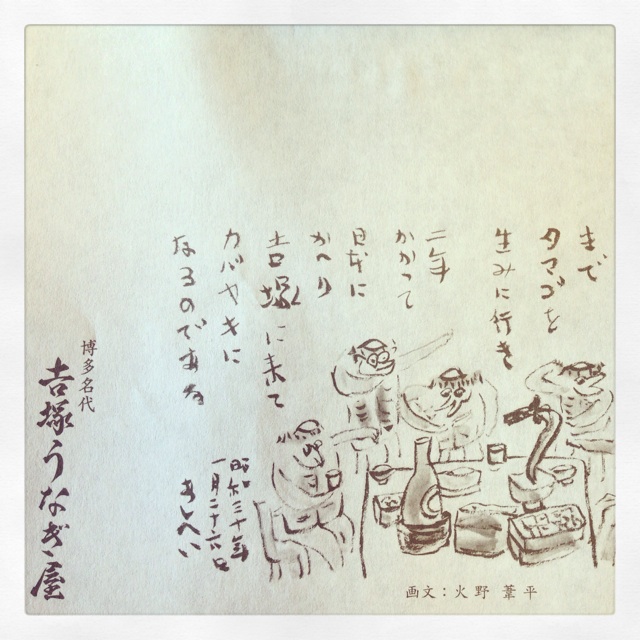 まで
タマゴを
生みに行き
二年
かかって
日本に
かへり
吉塚に来て
カバヤキに
なるのである
昭和三十年
一月二十六日
あしへい
博多名代
吉塚うなぎ屋
画文：火野 葦平